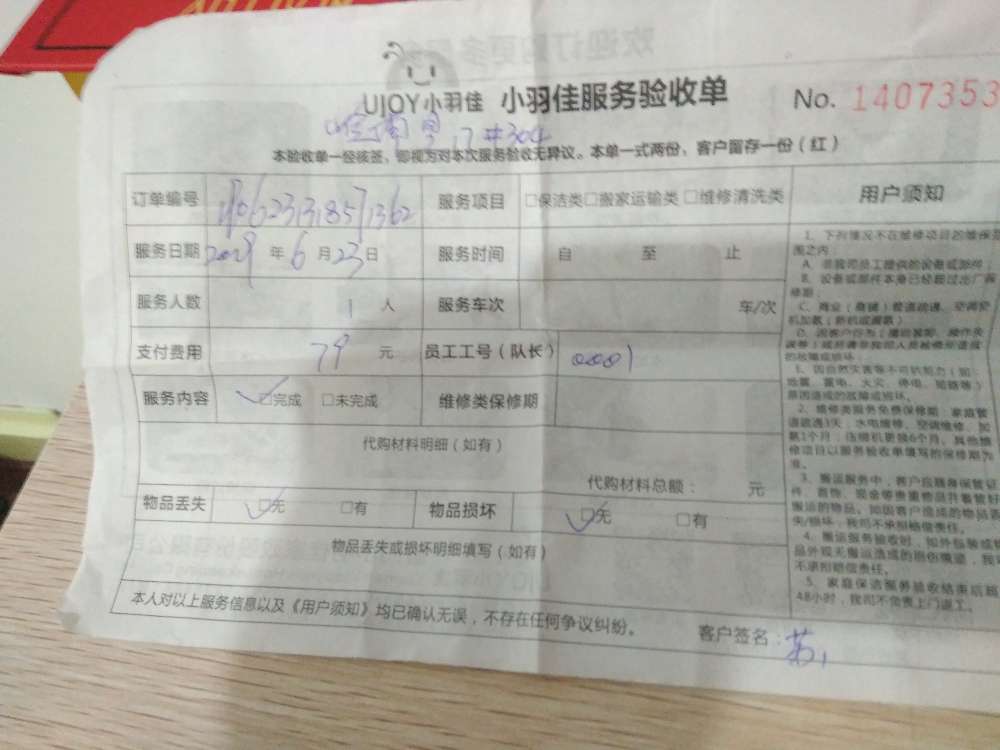 UJOY小羽佳 小羽佳服务验收单 No. 1407353
17#304
本验收单一经核签，即视为对本次服务验收无异议。本单一式两份、客户留存一份（红）
订单编号 服务项目 □保洁类□搬家运输类□维修清洗类
服务日期 年 6 月 23 日 服务时间 自 至 止
服务人数 1 人 服务车次 车/次
支付费用 79 元 员工工号（队长） 0001
服务内容 □完成 □未完成 维修类保修期
代购材料明细（如有）
代购材料总额： 元
物品丢失 □无 □有 物品损坏 □无 □有
物品丢失或损坏明细填写（如有）
本人对以上服务信息以及《用户须知》均已确认无误，不存在任何争议纠纷。
客户签名：
用户须知
1、下列情况不在维修项目的维保范
围之内
A、非我司员工提供的设备或部件
B、设备或部件本身已经超过出厂保
修期
E、因自然灾害等不可抗势力（如：
地震、雷电、火灾、停电、短路等）
原因造成的故障或损坏。
2、维修类服务免费保修期：家庭管
道疏通3天，水电维修、空调维修、加
氨1个月，压缩机更换6个月。其他维
修项目以服务验收单填写的保修期为
准。
3、搬运服务中，客户应随身保管证
件、首饰、现金等贵重物品并看管好
搬运的物品。如因客户造成的物品丢
失/损坏，我司不承担赔偿责任。
4、搬运服务验收时，如外包装或物
品外观无搬运造成的损伤痕迹，我司
不承担赔偿责任。
5、家庭保洁服务验收结束后超
48小时，我司不负责上门返工。